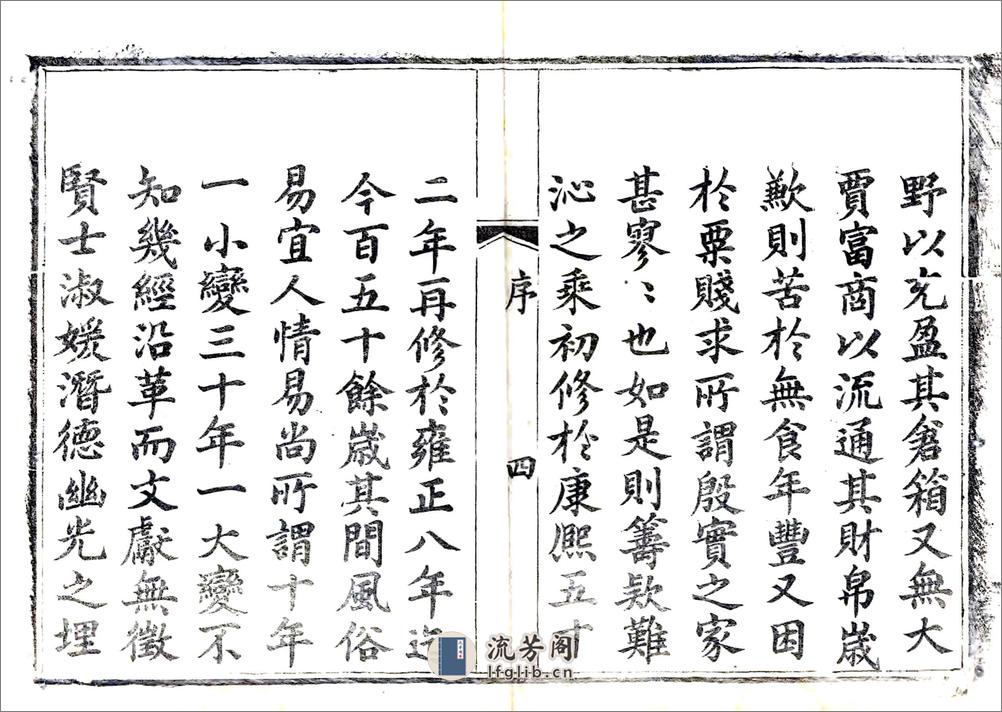 野以充盈其倉箱又無大
賈富商以流通其財帛歲
歉則苦於無食年豐又困
於粟賤求所謂殷實之家
甚寥〻也如是則籌欵難
沁之乘初修於康熙五十
序
四
二年再修於雍正八年迄
今百五十餘歲其間風俗
易宜人情易尚所謂十年
一小變三十年一大變不
知幾經沿革而文獻無徵
賢士淑媛潛德幽光之埋
流芳阁
lfglib.cn